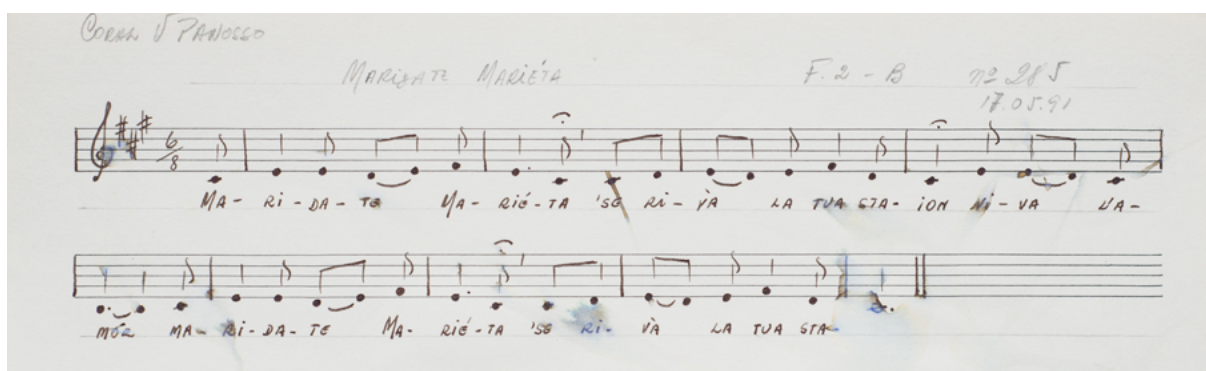 CORAL V PANOSSO
MARIDATE MARIÉTA F. 2 - B nº 285
17.05.91
6/8
MA- RI-DA-TE MA- RIÉ-TA 'SE RI- VÀ LA TUA STA- ION NI-VA L'A-
MÓR MA- RI-DA-TE MA- RIÉ-TA 'SE RI- VÀ LA TUA STA-